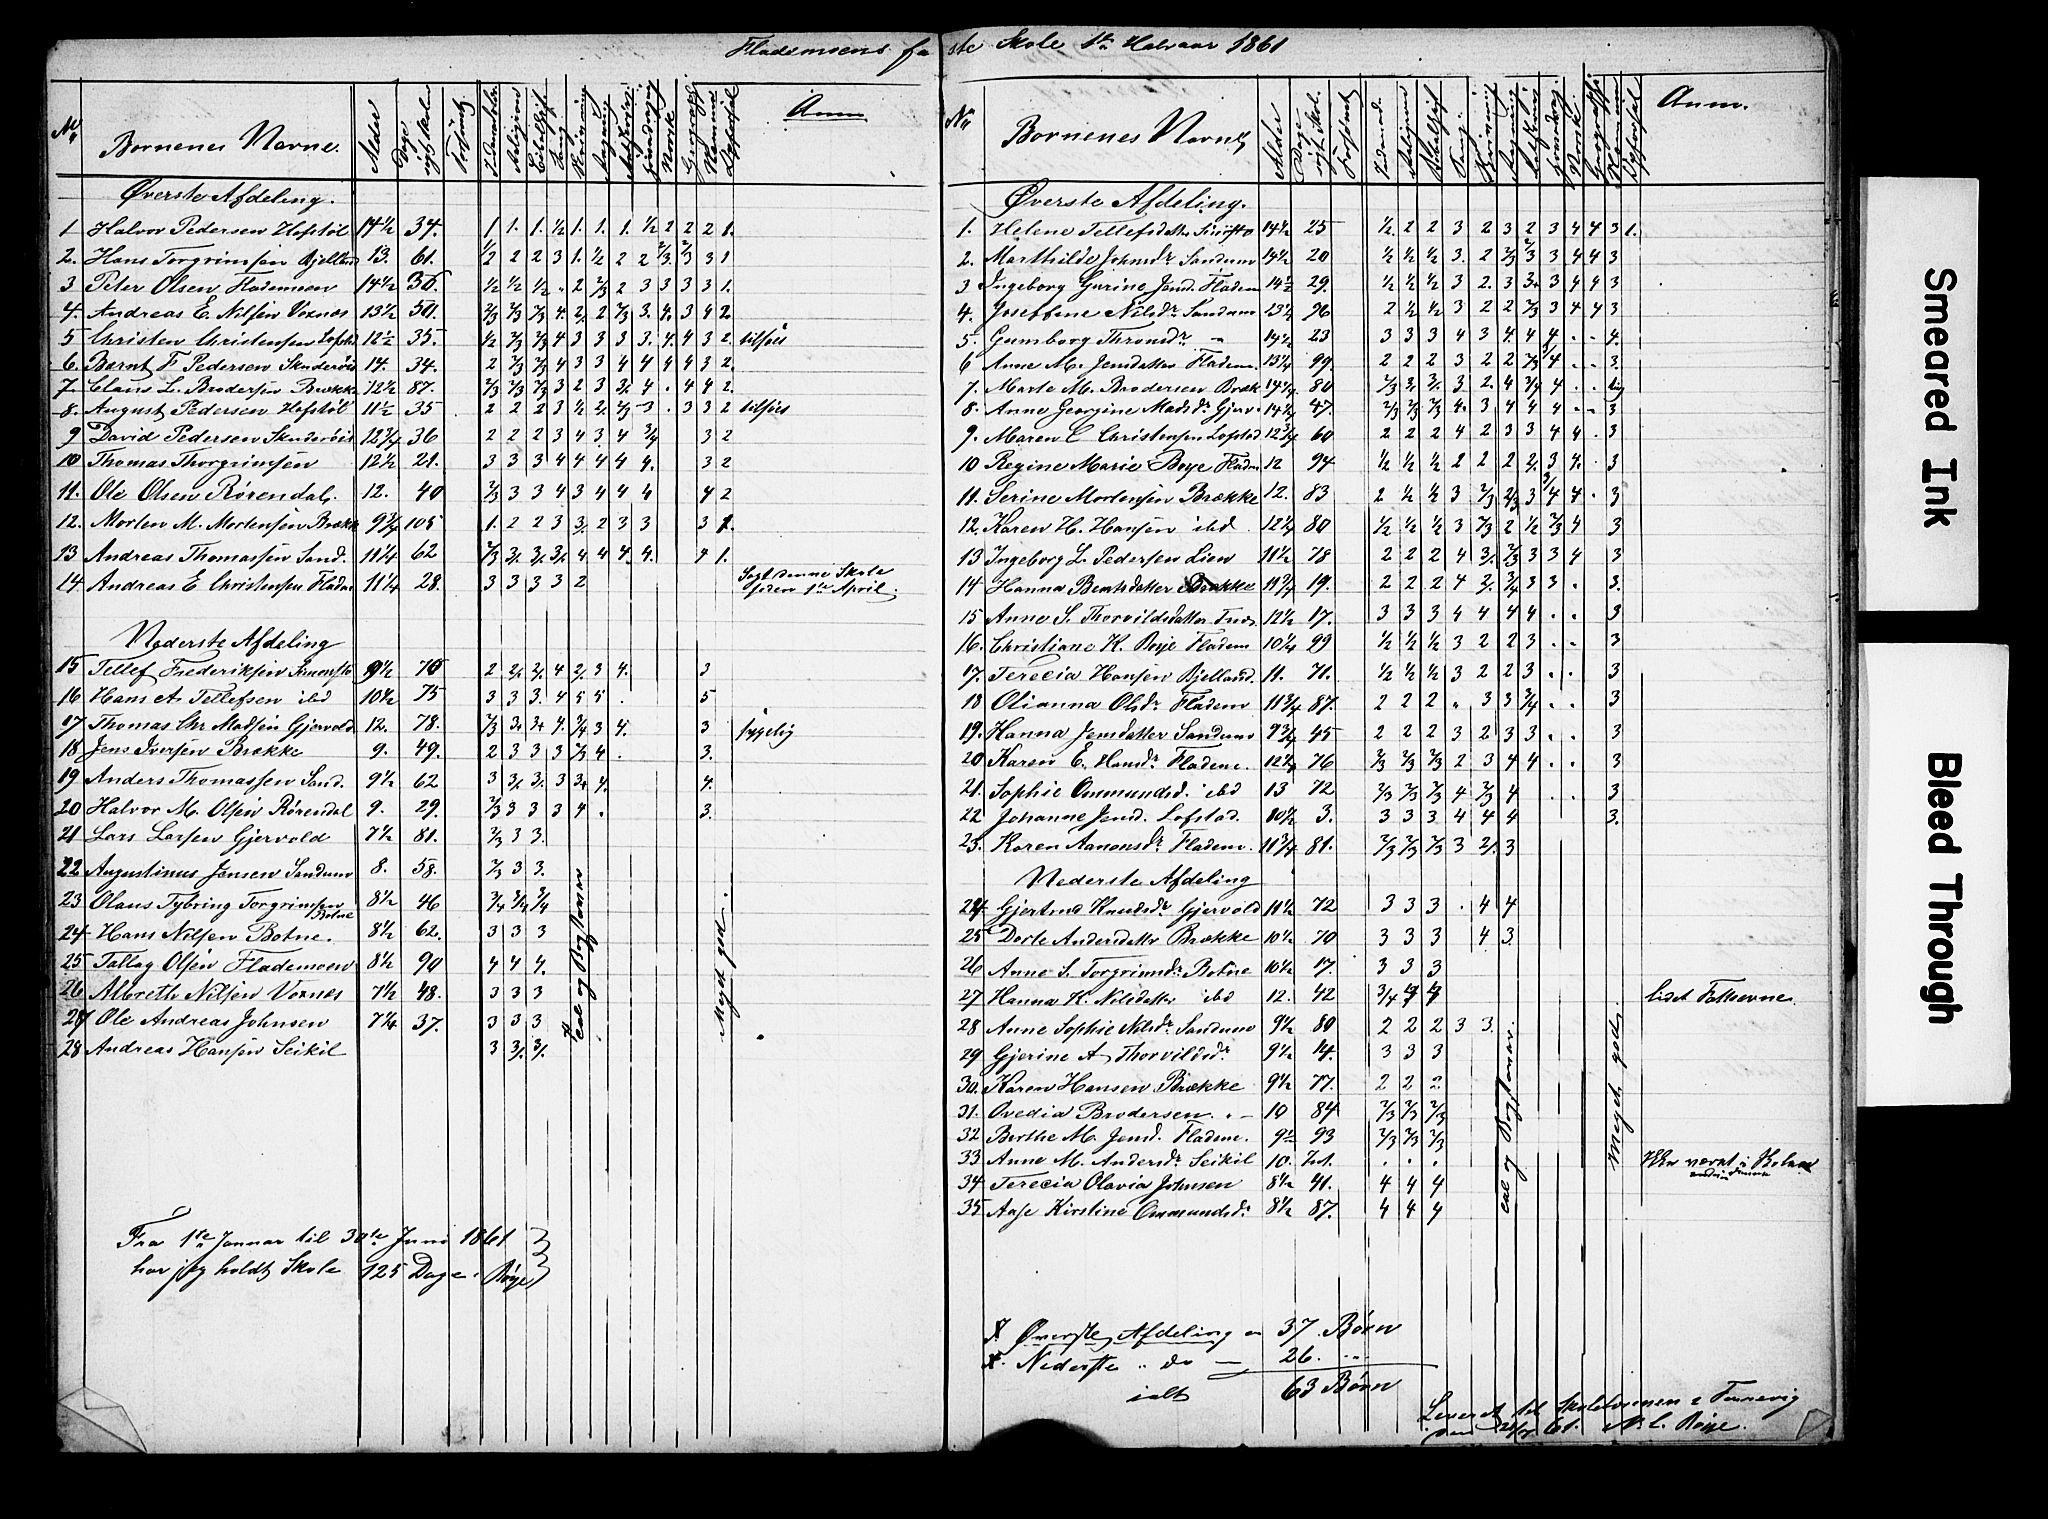 Flademoens faste Skole 1ste Halvaar 1861
No Børnenes Navne. Alder Dage søgt Skolen Forsømt Religion Regning Norsk Geografi Anm
Øverste Afdeling.
1 Halvor Pedersen Hofstøl 14½ 34. 1 1. 1. ½ 1. 1. 1. ½ 2 2 2 1.
2. Hans Torgrimsen Bjelland 13. 61. ½ 2 2 3 1. ½ 2 2 2/3 2/3 3 1
3 Peter Olsen Flademoen 14½ 36. ½ ½ ½ „ 2 2/3 2 3 3 3 3 1.
4. Andreas E. Nilsen Voxnes 13½ 50. 2/3 2/3 2/3 4 2 2 2/3 3. 4. 3 4 2.
5 Christen Christensen Lofstd 12½ 35. ½ 2/3 2/3 4 3 3 3 3. 4. 4 3 2. tilføies
6. Bernt F Pedersen 14. 34. 2 2/3 2/3 4 3 3 4 4 4 4 3 2.
7 Claus L. Brodersen Brække 12½ 87. 2/3 2/3 2/3 3 2 3 3. 4. . 4 4 2
8. August Pedersen Hofstøl 11½ 35 2 2 2 3 ½ 2. 2/3 - 3 . 3 3 2 tilføies
9 David Pedersen 12¾ 36 2 2 2 3 4 3. 4 ¾ 3 2
10 Thomas Thorgrimsen 12½ 21. 3 3 3 4 4 4 4 4. 3 2
11. Ole Olsen Rørendal. 12. 40 2/3 3 3 4 3 4 4 4 4 2
12. Morten M. Mortensen Brække 9¾ 105 1. 2 2 3 3. 2 3 3 3 1.
13 Andreas Thomassen Sand. 11¼ 62 2/3 3. 3. 3. 4 4 4. 4. 4 1.
14 Andreas E Christensen Fladm 11¼ 28. 3 3 3 3 2 Søgt denne Skole
siden 1ste April.
Nederste Afdeling
15 Tellef Frederiksen 9½ 70 2 2. 2. 4 2. 3 4. 3
16 Hans A Tellefsen ibd 10½ 75 3 3 3. 4 5 5 . 5
17 Thomas Chr Madsen Gjervold 12. 78. 2/3 3. 3. 4. ¾ 3 4. 3 sygelig
18 Jens Iversen Brække 9. 49. 2 3 3 3 2/3 4 . 3.
19 Anders Thomassen Sand. 9½ 62 3 3. 3. 3 3. 4. 4.
20 Halvor M. Olsen Rørendal 9. 29. 2/3 3 3 3 4 . 3.
21 Lars Larsen Gjervold 7½ 81. 2/3 3 3.
22 Augustinus Jensen Sandum 8. 58. 2/3 3 3.
23 Olaus Tybring Torgrimsen Botne 8½ 46 ¾ ¾ ¾
24 Hans Nilsen Botne. 8½ 62. 3 3 3
25 Tallag Olsen Flademoen 8½ 90 4 4 4.
26 Albreth Nilsen Voxnes 7½ 48. 3 3 3
27 Ole Andreas Johnsen 7¼ 37. 3 3 3
28 Andreas Hansen Seikil 3 3. 3.
Tal og Bogstaver
Meget god.
Fra 1ste Januar til 30te Juni 1861
har jeg holdt Skole 125 Dage. Bøye
No Børnenes Navne Alder Dage søgt Skol. Forsømt Udenad. Religion Regning Norsk Geografi Anm.
Øverste Afdeling.
1. Helene Tellefsdatter 14½ 25 ½ 2 2 3 2 3 2 3 4 4 3 1.
2. Marthilde Johnsdr Sandum 14½ 20 ½ ½ ½ 3. 2 2/3 2/3 3 4 4 3
3 Ingeborg Gurine Jensd. Fladem 14½ 29. ½ ½ ½ 3 2. 3 3. 3 4 4 3
4. Joseffene Nilsdr Sandum 13½ 96 2 ½ ½ 3 2 2 2/3 3 4 4 3
5. Gunnborg Thronsdr — 14½ 23 3 3 3 4 3 4. 4 4 . . 4.
6 Anne M. Jensdatter Fladem. 13¼ 99. 2 2 2 3 2 2 2/3 ¾ . . 3.
7. Marte M. Brodersen Bræk 14½ 80 2/3 3. 3. 3 2. 4 ¾ 4 . .
8. Anne Georgine Madsdr Gjerv. 14½ 47. 2/3 2/3 2/3 4. 3 4 4 4 . . 3
9. Maren E Christensen Lofstad 12¾ 60 2 2 2 4 2 3 3 4 4 . 3
10 Regine Marie Bøye Fladm 12 94 ½ ½ ½ 2 2 2 2. 3 4. . 3
11. Serine Mortensen Brække 12. 83 2 ½ ½ 3 2/3 2/3 3 ¾ 4 . 3
12. Karen H. Hansen ibd 12¼ 80 ½ ½ ½ 3 2/3 2 ½ 2/3 4 3
13 Ingeborg L. Pedersen Lien 11½ 78 2 2 2 4 3. 2/3 3 3 4 3
14 Hanna Berntsdatter Brække 11¾ 19. 2 2 2 4 2. ¾ 3 3 . 3.
15 Anne S. Thorvildsdatter 12½ 17. 3 3 3 4 4 4 4 . . 3
16. Christiane K. Bøye Fladem 10¼ 99 ½ ½ ½ 3 2 2 3 . . 3
17. Terecia Hansen Bjelland. 11. 71. ½ ½ ½ 3 2 2 3 . . 3
18 Olianna Olsdr Fladem 11¾ 87. 2 2 2 „ 3 3 ¾ . . 3
19. Hanna Jensdatter Sandum 9¾ 45 2 2 2 3 2 3 3 . . 3
20 Karen E. Hansdr Fladem. 12¼ 76 2/3 2/3 2/3 2 3 4 4 . . 3
21. Sophie Ommundsd. ibd 13 72 2/3 2/3 2/3 4 2/3 4 . . 3
22 Johanne Jensd. Lofstad. 10½ 3. 3 3 3 4 4 4 3.
23. Karen Aanonsdr Fladem. 11¾ 81. 2/3 2/3 2/3 3 2. 3
Nederste Afdeling
24 Gjertrud Knudsdr Gjervold 11½ 72 3 3 3 . 4 4
25 Dorte Andersdatter Brække 10½ 70 3 3 3 4 3.
26 Anne S. Torgrimsdr Botne 10½ 17. 3 3 3
27 Hanna K. Nilsdatter ibd 12. 42 ¾ 4 4 lidet Fatteevne.
28 Anne Sophie Nilsdr Sandum 9½ 80 2 2 2 3 3.
29 Gjerine A Thorvildsdr 9½ 14. 3 3 3
30. Karen Hansen Brække 9½ 77. 2 2 2
31. Ovedia Brodersen. — 10 84 2/3 2/3 2/3
32 Berthe M. Jensd. Fladem. 9½ 93 2/3 2/3 2/3
33. Anne M. Andersdr Seikil 10. Int. . . . været i Botne
34 Terecia Olavia Johnsen 8½ 41. 4 4 4
35 Aase Kirstine Ommundsdr 8½ 87. 4 4 4
Tal og Bogstaver
Meget god.
I Øverste Afdeling er 37 Børn
I Nederste do — 26. „
ialt 63 Børn
Leveret til Skolekommen i Tvermevig
den 21/7 61. N. C. Bøye.
Smeared Ink
Bleed Through